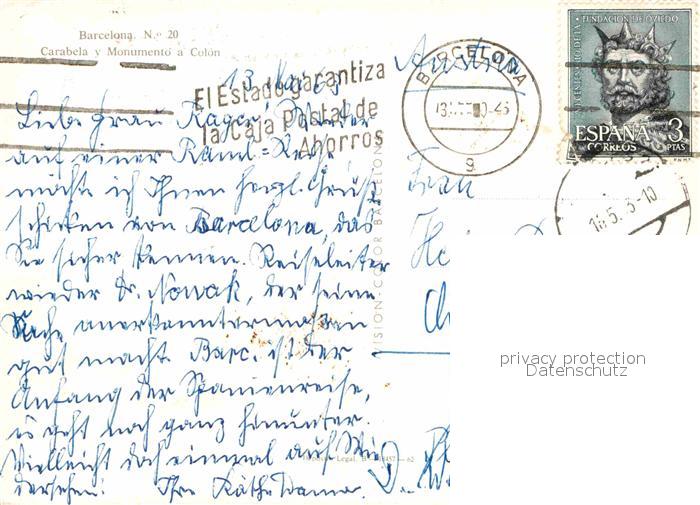 Barcelona. N.º 20
Carabela y Monumento a Colón
El Estado garantiza
la Caja Postal de
Ahorros
BARCELONA
9
FUNDACION DE OVIEDO
ESPAÑA 3
CORREOS PTAS
18.5.
Austria
Liebe Frau Wieder
auf einer Rund-Reise
möchte ich Ihnen herzl. Grüße
schicken von Barcelona, das
Sie sicher kennen. Reiseleiter
wieder Dr. Nowak, der seine
Sache anerkanntermaßen
gut macht. Barc. ist der
Anfang der Spanienreise,
es geht noch ganz hinunter.
Vielleicht doch einmal auf Wie
dersehen! Ihre Käthe
Frau
VISION-COLOR BARCELONA
Legal. B. 62
privacy protection
Datenschutz